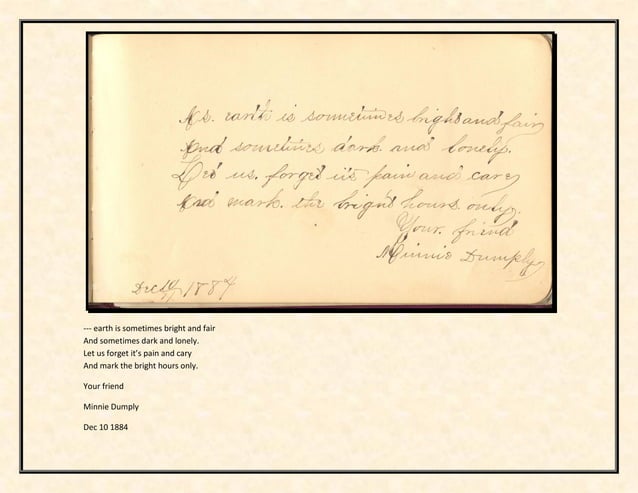 As. earth is sometimes bright and fair
And sometimes dark and lonely.
Let us. forget its pain and care
And mark. the bright hours only.
Your. friend
Minnie Dumply
Dec 1884
--- earth is sometimes bright and fair
And sometimes dark and lonely.
Let us forget it's pain and cary
And mark the bright hours only.
Your friend
Minnie Dumply
Dec 10 1884